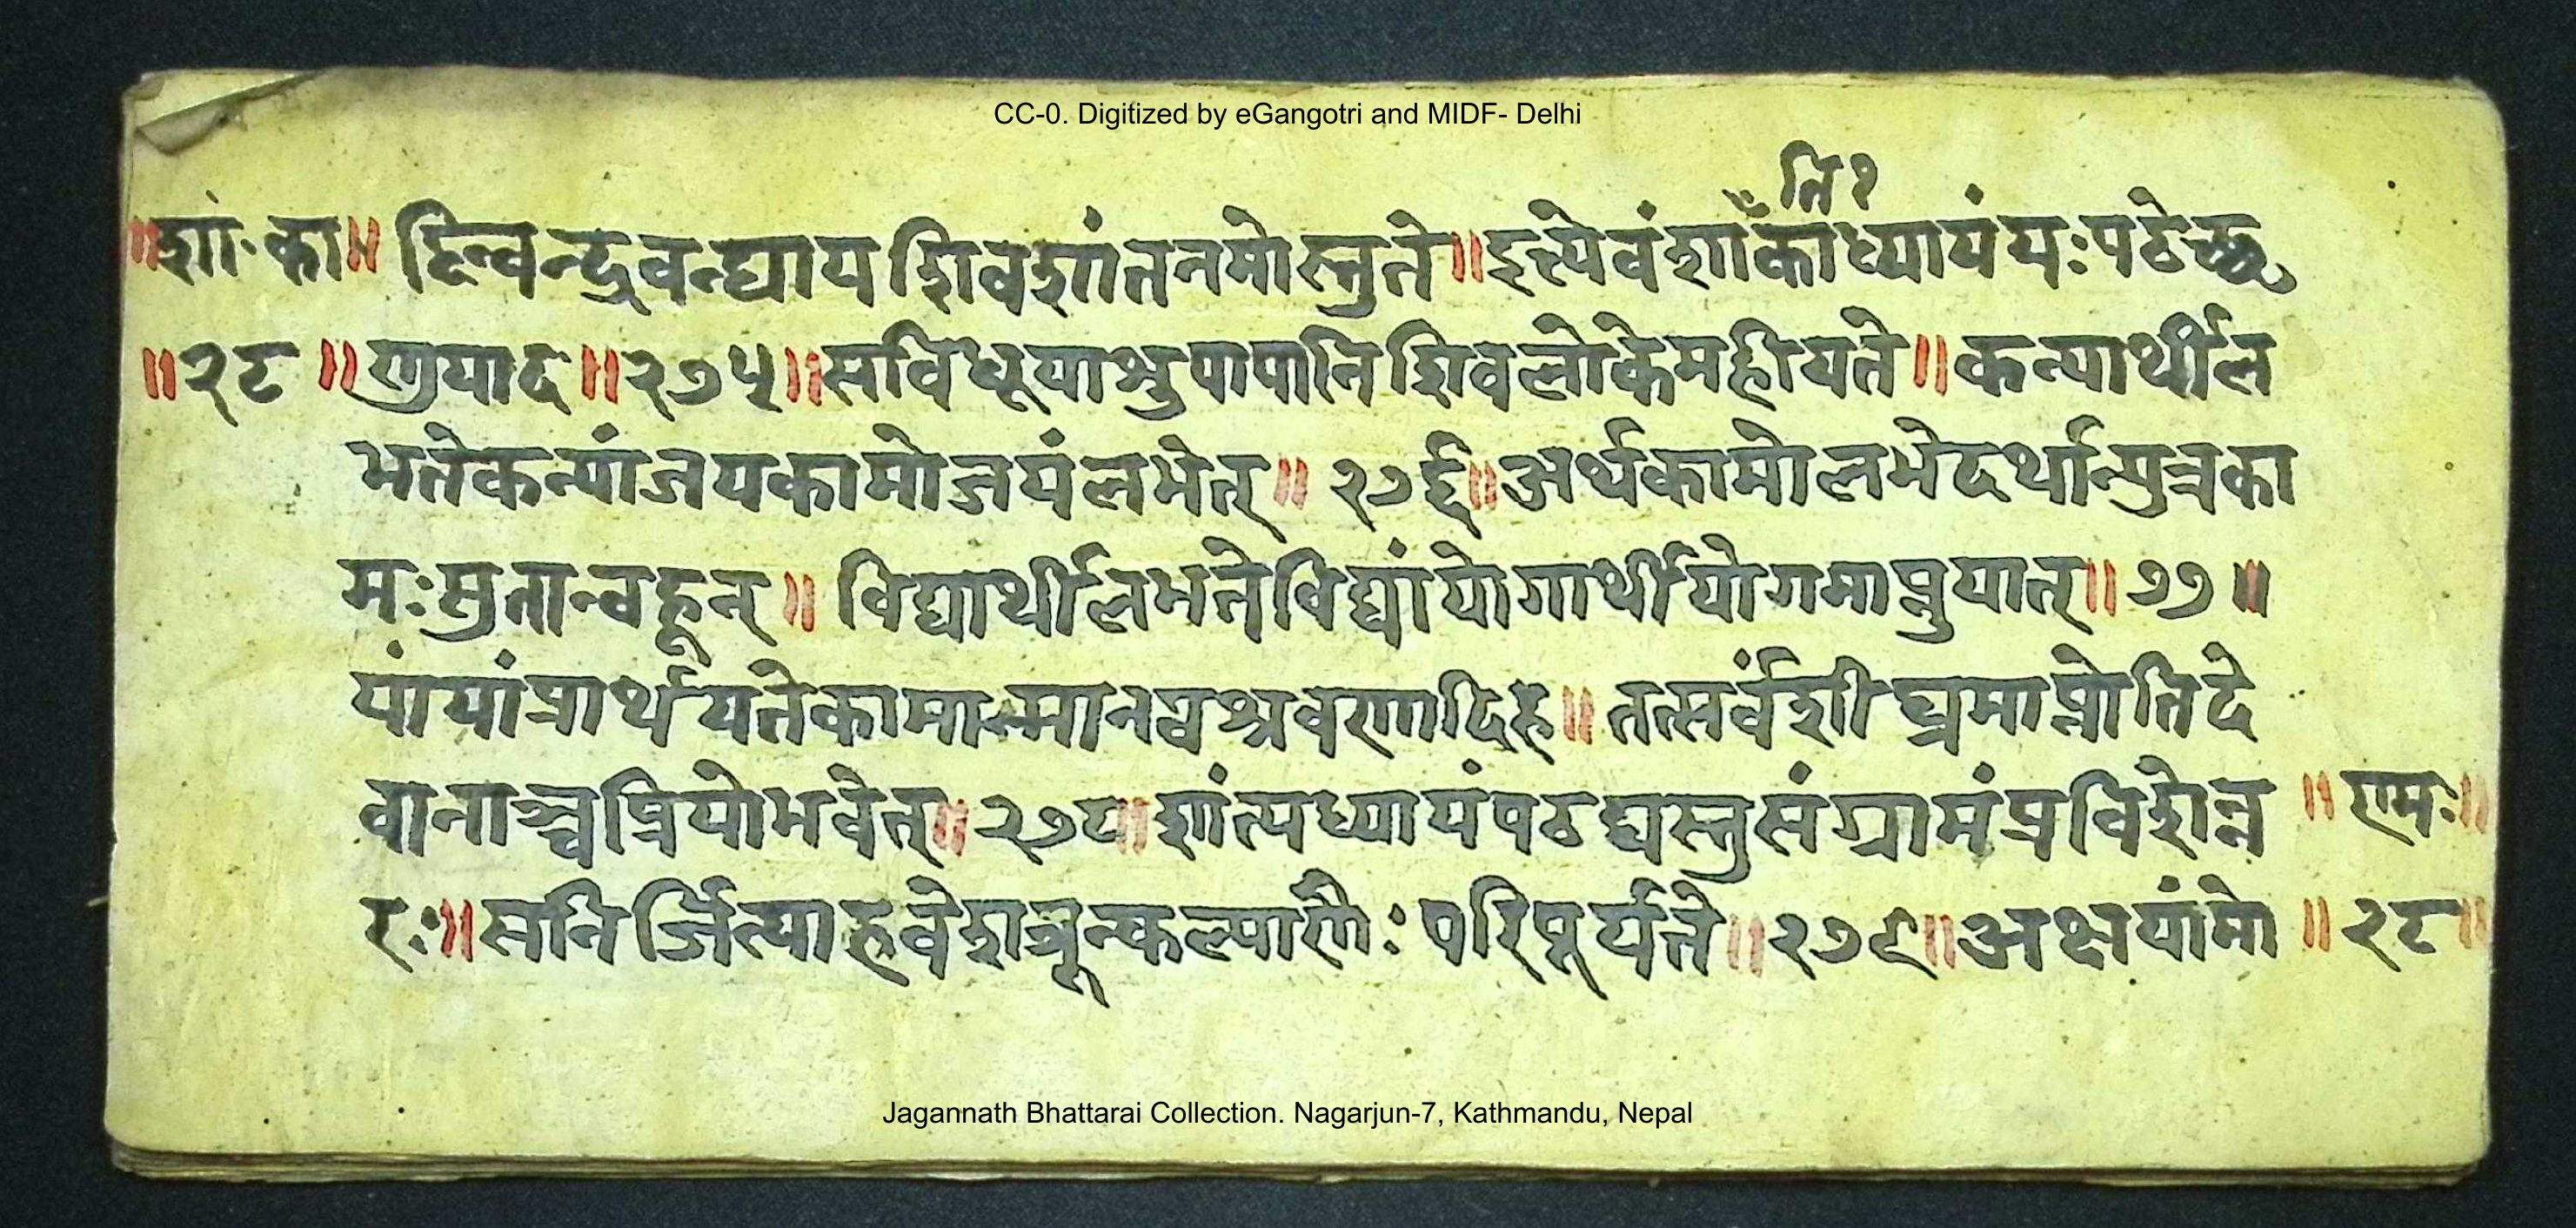 CC-0. Digitized by eGangotri and MIDF- Delhi
ति १
॥शां·का॥ द्दिन्वन्द्रवन्द्याय शिवशांतनमोस्तुते॥इत्येवंशाँकाध्यायंयःपठेच्छृ
॥२८॥ णुयाद॥२७५॥सविधूयाश्रुपापानि शिवलोकेमहीयते॥कन्यार्थील
भतेकन्यांजयकामोजयंलभेत्॥२७६॥अर्थकामोलभेदर्थान्पुत्रका
मःसुतान्वहून्॥विद्यार्थीलभतेविद्यांयोगार्थीयोगमाप्नुयात्॥७७॥
यांयांप्रार्थयतेकामान्मानवश्रवणादिह॥तत्सर्वंशीघ्रमाप्नोतिदे
वानाञ्चप्रियोभवेत्॥२७८॥शांत्यध्यायंपठद्यस्तुसंग्रामंप्रविशेन्न ॥रामः॥
रः॥सनिर्जित्याहवेशत्रून्कल्याणैःपरिपूर्यते॥२७९॥अक्षयांमो ॥२८॥
Jagannath Bhattarai Collection. Nagarjun-7, Kathmandu, Nepal